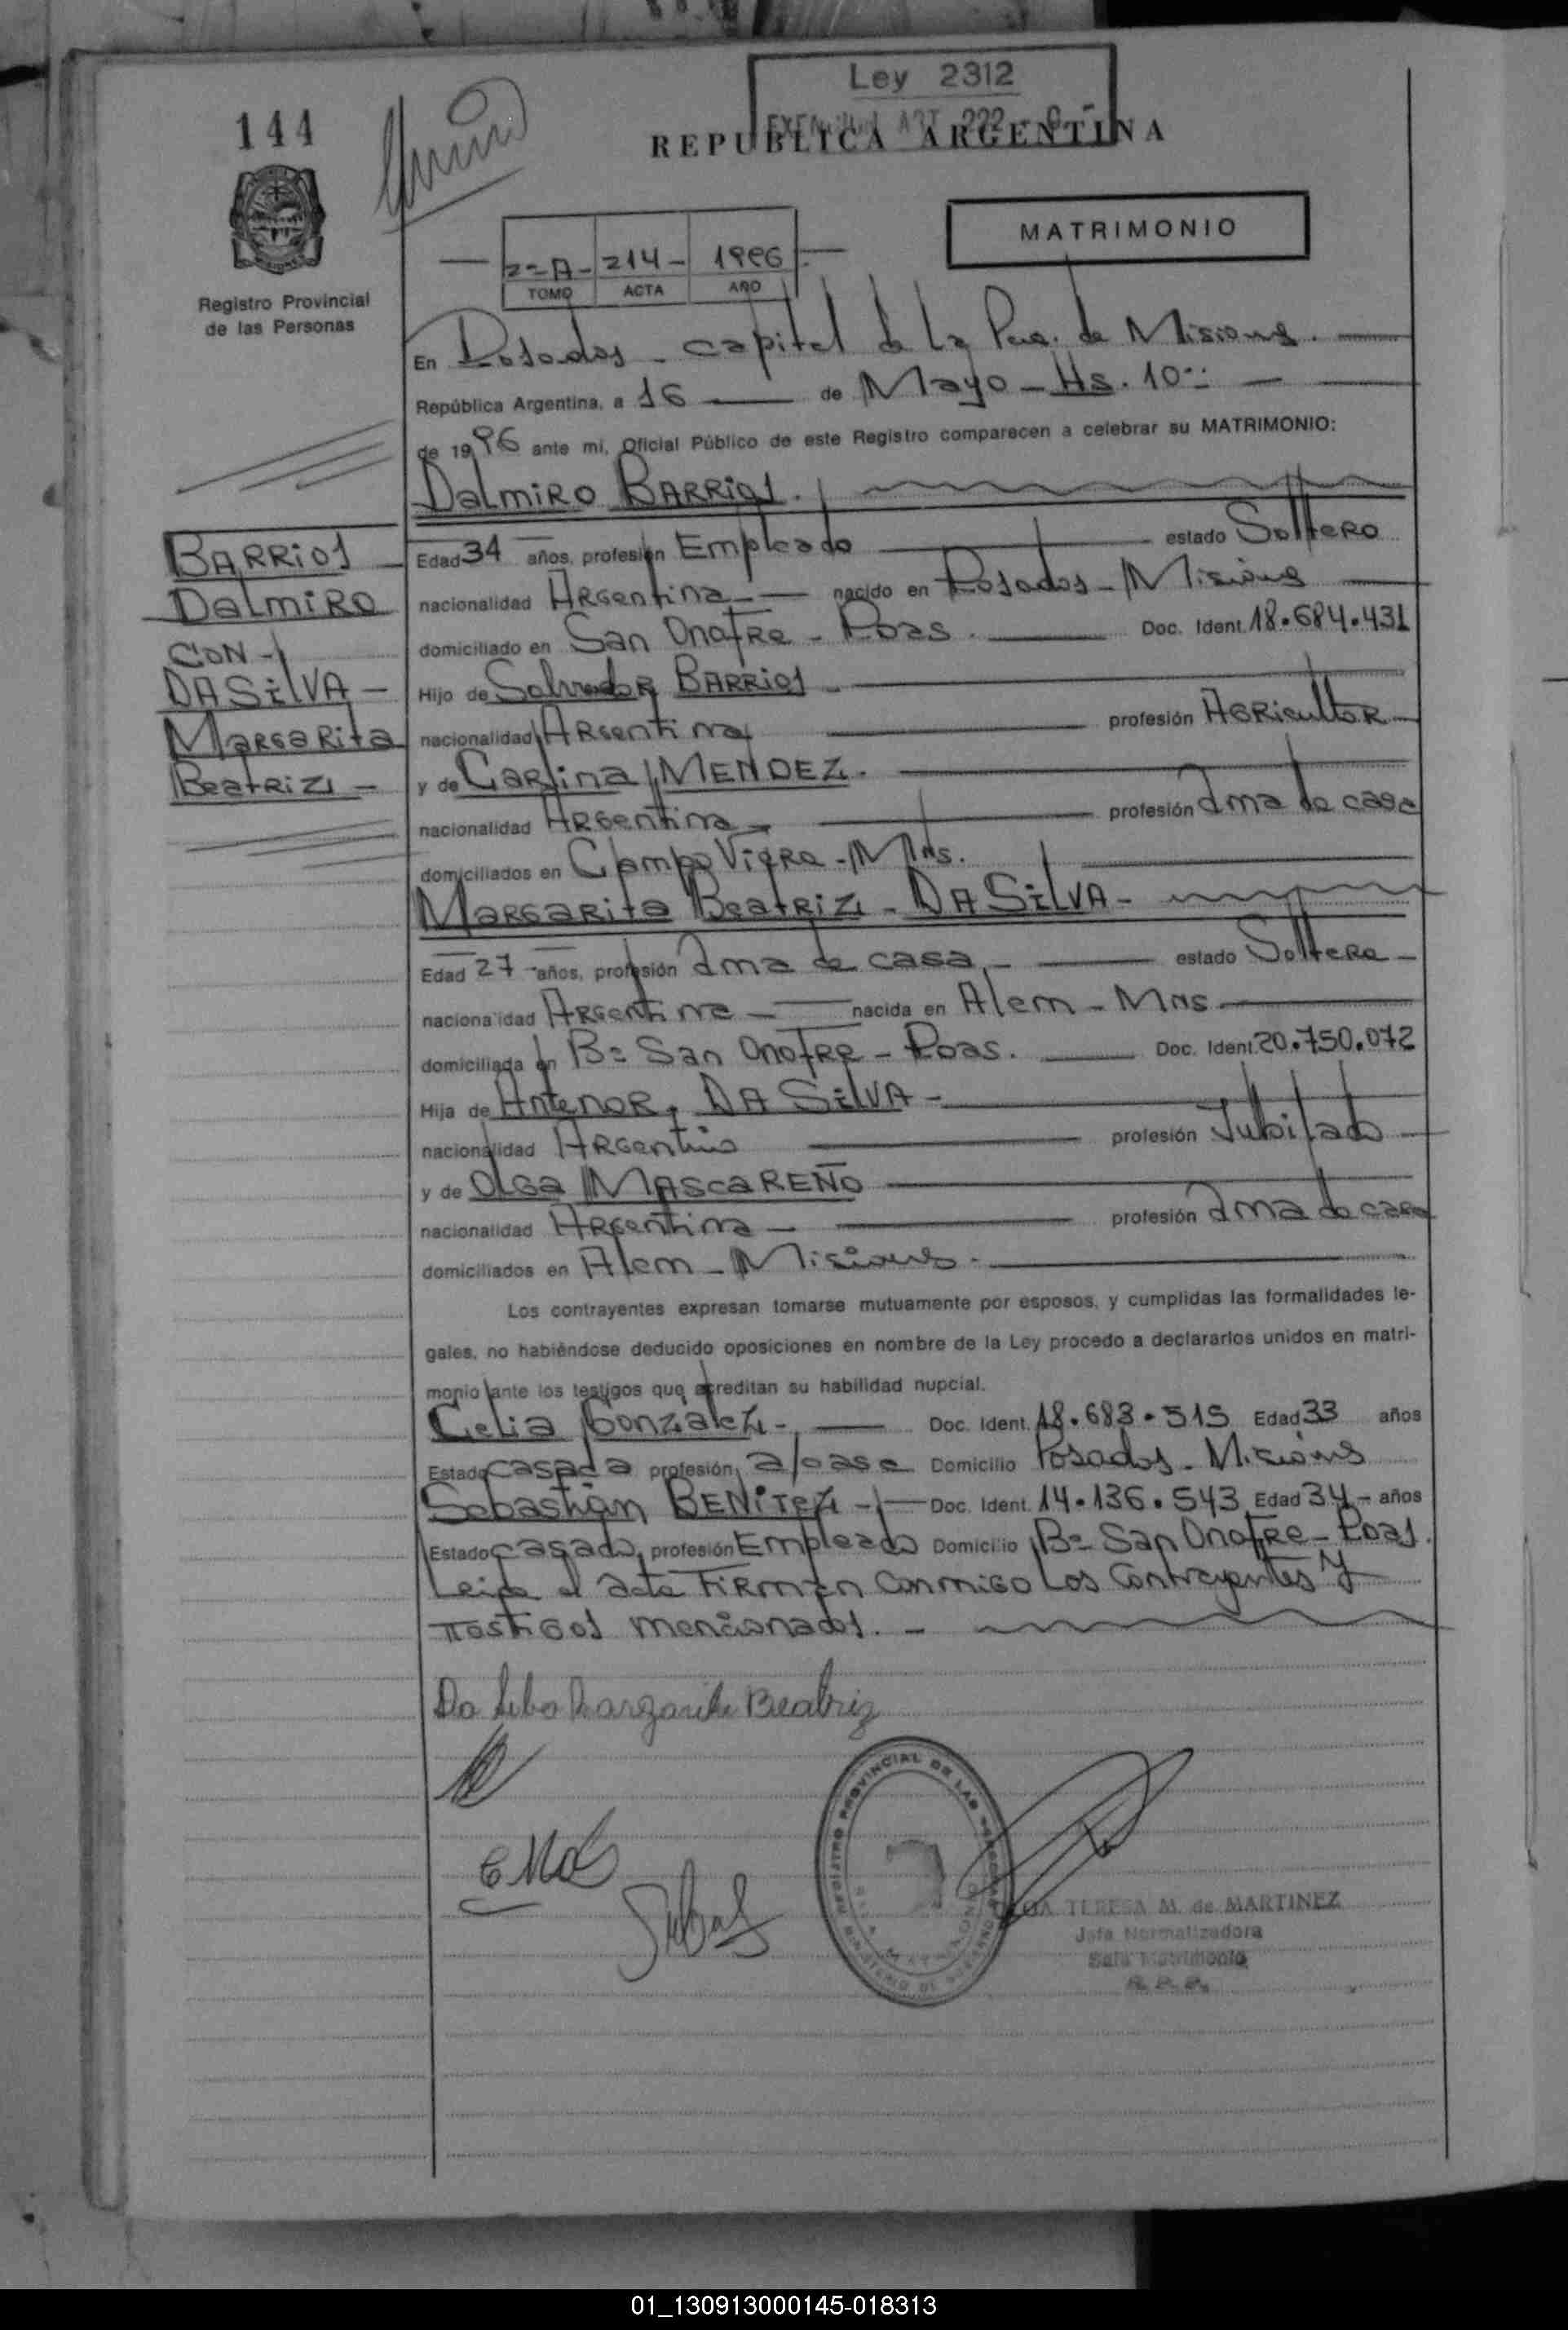 Ley 2312
144
REPUBLICA ARGENTINA
MATRIMONIO
2=A- 214- 1996
TOMO ACTA AÑO
Registro Provincial
de las Personas
En Posadas - capital de La Pcia. de Misiones.
República Argentina, a 16 de Mayo - Hs. 10
de 1996 ante mi, Oficial Público de este Registro comparecen a celebrar su MATRIMONIO:
Dalmiro BARRIOS.
BARRIOS
Dalmiro
CON -
DA SILVA -
Margarita
Beatriz -
Edad 34 años, profesión Empleado estado Soltero
nacionalidad Argentina - nacido en Posadas - Misiones
domiciliado en San Onofre - Poas. Doc. Ident. 18.684.431
Hijo de Salvador BARRIOS -
nacionalidad Argentina profesión Agricultor
y de Carlina MENDEZ.
nacionalidad Argentina - profesión Ama de casa
domiciliados en Campo Viera - Mns.
Margarita Beatriz - DA SILVA -
Edad 27 - años, profesión Ama de casa - estado Soltera -
nacionalidad Argentina - nacida en Alem - Mns
domiciliada en B= San Onofre - Poas. Doc. Ident. 20.750.072
Hija de Antenor, DA SILVA -
nacionalidad Argentino profesión Jubilado
y de Olga MASCAREÑO
nacionalidad Argentina - profesión Ama de casa
domiciliados en Alem - Misiones.
Los contrayentes expresan tomarse mutuamente por esposos, y cumplidas las formalidades le-
gales, no habiéndose deducido oposiciones en nombre de la Ley procedo a declararlos unidos en matri-
monio ante los testigos que acreditan su habilidad nupcial.
Celia Gonzalez - Doc. Ident. 18.683.515 Edad 33 años
Estado casada profesión a/casa Domicilio Posadas - Misiones
Sebastián BENITEZ - Doc. Ident. 14.136.543 Edad 34 - años
Estado casado, profesión Empleado Domicilio B= San Onofre - Poas.
Leida el acta Firman conmigo Los Contrayentes y
testigos mencionados. -
Da Silva Margarita Beatriz
REGISTRO PROVINCIAL DE LAS PERSONAS
TERESA M. de MARTINEZ
Jefa Normalizadora
Sala Matrimonio
R. P. P.
01_130913000145-018313